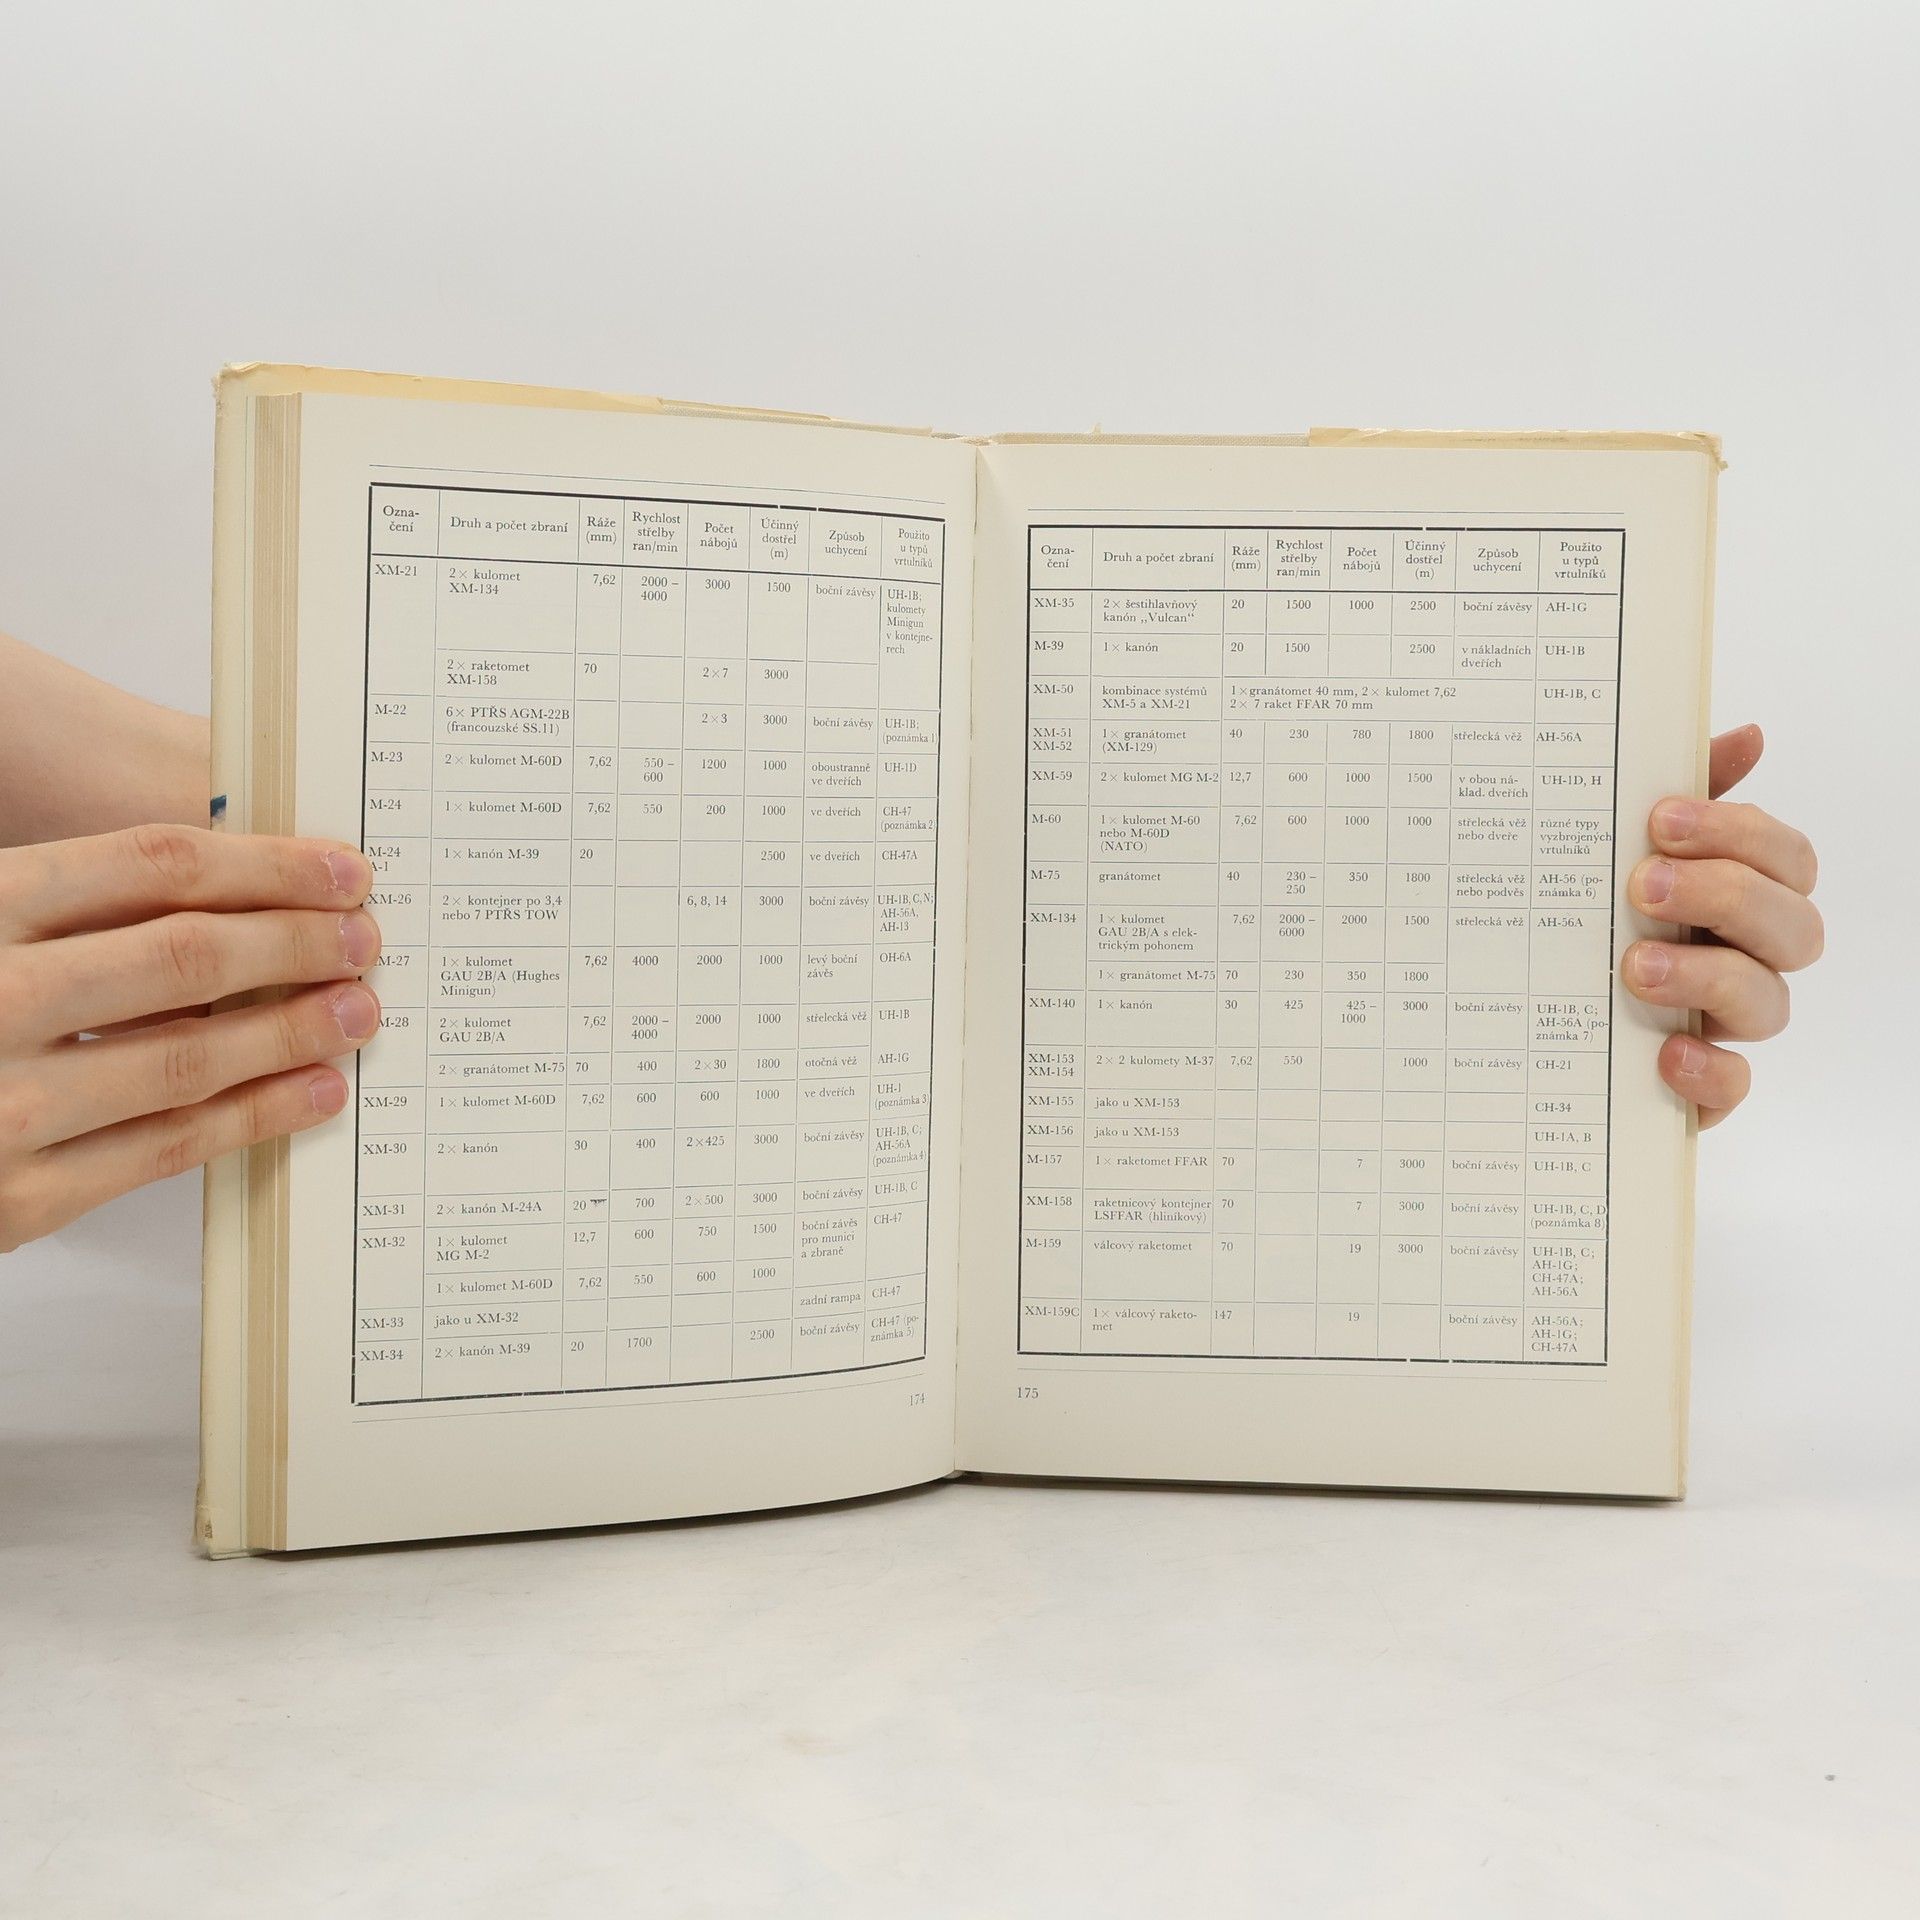 Ozna-
čení
Druh a počet zbraní
Ráže
(mm)
Rychlost
střelby
ran/min
Počet
nábojů
Účinný
dostřel
(m)
Způsob
uchycení
Použito
u typů
vrtulníků
XM-21
2× kulomet
XM-134
7,62
2000 –
4000
3000
1500
boční závěsy
UH-1B;
kulomety
Minigun
v kontejne-
rech
2× raketomet
XM-158
70
2×7
3000
M-22
6× PTŘS AGM-22B
(francouzské SS.11)
2×3
3000
boční závěsy
UH-1B;
(poznámka 1)
M-23
2× kulomet M-60D
7,62
550 –
600
1200
1000
oboustranně
ve dveřích
UH-1D
M-24
1× kulomet M-60D
7,62
550
200
1000
ve dveřích
CH-47
(poznámka 2)
M-24
A-1
1× kanón M-39
20
2500
ve dveřích
CH-47A
XM-26
2× kontejner po 3,4
nebo 7 PTŘS TOW
6, 8, 14
3000
boční závěsy
UH-1B, C, N;
AH-56A,
AH-13
M-27
1× kulomet
GAU 2B/A (Hughes
Minigun)
7,62
4000
2000
1000
levý boční
závěs
OH-6A
M-28
2× kulomet
GAU 2B/A
7,62
2000 –
4000
2000
1000
střelecká věž
UH-1B
2× granátomet M-75
70
400
2×30
1800
otočná věž
AH-1G
XM-29
1× kulomet M-60D
7,62
600
600
1000
ve dveřích
UH-1
(poznámka 3)
XM-30
2× kanón
30
400
2×425
3000
boční závěsy
UH-1B, C;
AH-56A
(poznámka 4)
XM-31
2× kanón M-24A
20
700
2×500
3000
boční závěsy
UH-1B, C
XM-32
1× kulomet
MG M-2
12,7
600
750
1500
boční závěs
pro munici
a zbraně
CH-47
1× kulomet M-60D
7,62
550
600
1000
XM-33
jako u XM-32
zadní rampa
CH-47
XM-34
2× kanón M-39
20
1700
2500
boční závěsy
CH-47 (po-
známka 5)
174
Ozna-
čení
Druh a počet zbraní
Ráže
(mm)
Rychlost
střelby
ran/min
Počet
nábojů
Účinný
dostřel
(m)
Způsob
uchycení
Použito
u typů
vrtulníků
XM-35
2× šestihlavňový
kanón „Vulcan“
20
1500
1000
2500
boční závěsy
AH-1G
M-39
1× kanón
20
1500
2500
v nákladních
dveřích
UH-1B
XM-50
kombinace systémů
XM-5 a XM-21
1×granátomet 40 mm, 2× kulomet 7,62
2× 7 raket FFAR 70 mm
UH-1B, C
XM-51
XM-52
1× granátomet
(XM-129)
40
230
780
1800
střelecká věž
AH-56A
XM-59
2× kulomet MG M-2
12,7
600
1000
1500
v obou ná-
klad. dveřích
UH-1D, H
M-60
1× kulomet M-60
nebo M-60D
(NATO)
7,62
600
1000
1000
střelecká věž
nebo dveře
různé typy
vyzbrojených
vrtulníků
M-75
granátomet
40
230 –
250
350
1800
střelecká věž
nebo podvěs
AH-56 (po-
známka 6)
XM-134
1× kulomet
GAU 2B/A s elek-
trickým pohonem
7,62
2000 –
6000
2000
1500
střelecká věž
AH-56A
1× granátomet M-75
70
230
350
1800
XM-140
1× kanón
30
425
425 –
1000
3000
boční závěsy
UH-1B, C;
AH-56A (po-
známka 7)
XM-153
XM-154
2× 2 kulomety M-37
7,62
550
1000
boční závěsy
CH-21
XM-155
jako u XM-153
CH-34
XM-156
jako u XM-153
UH-1A, B
M-157
1× raketomet FFAR
70
7
3000
boční závěsy
UH-1B, C
XM-158
raketnicový kontejner
LSFFAR (hliníkový)
70
7
3000
boční závěsy
UH-1B, C, D
(poznámka 8)
M-159
válcový raketomet
70
19
3000
boční závěsy
UH-1B, C;
AH-1G;
CH-47A;
AH-56A
XM-159C
1× válcový raketo-
met
147
19
boční závěsy
AH-56A;
AH-1G;
CH-47A
175